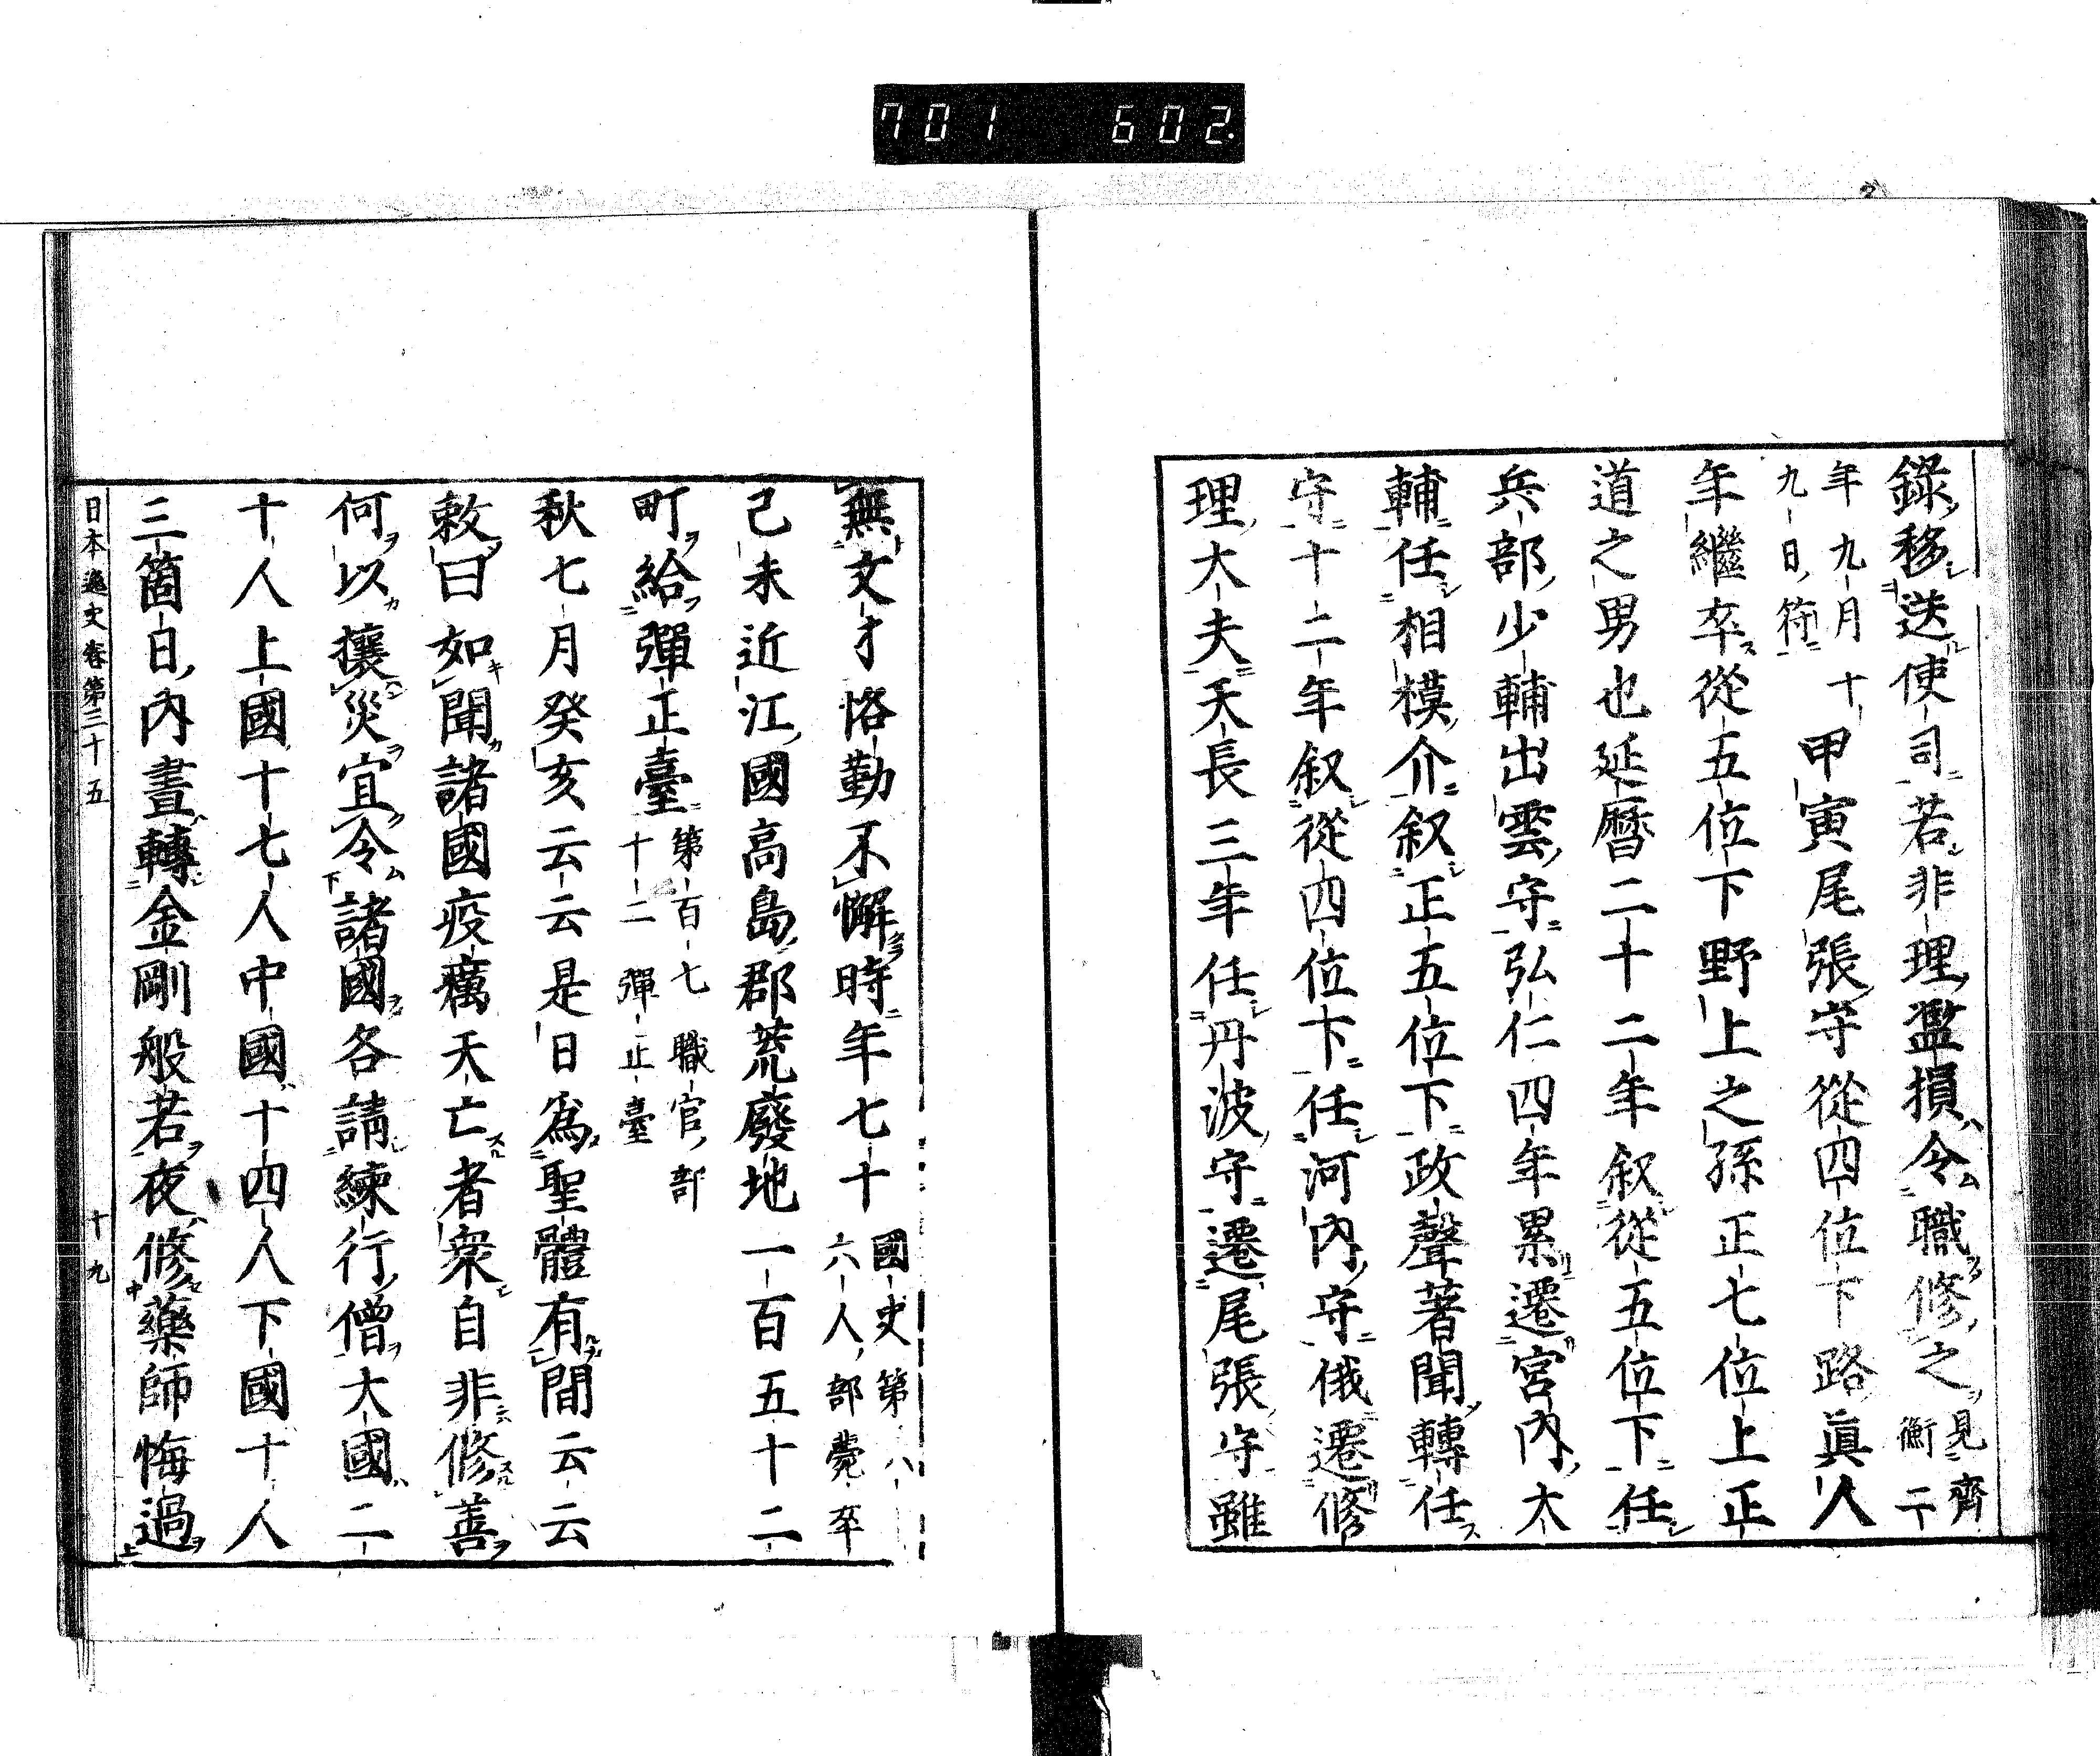 701 602
錄移送使司若非理濫損令職修之見齊衡二
年九月十九日符甲寅尾張守從四位下路眞人
年繼卒從五位下野上之孫正七位上正
道之男也延曆二十二年叙從五位下任
兵部少輔出雲守弘仁四年累遷宮內大
輔任相模介叙正五位下政聲著聞轉任
守十二年叙從四位下任河內守俄遷修
理大夫天長三年任丹波守遷尾張守雖
無文才恪勤不懈時年七十國史第八十六人部薨卒
己未近江國高島郡荒廢地一百五十二
町給彈正臺第百七職官部十二彈正臺
秋七月癸亥云云是日爲聖體有間云云
敕曰如聞諸國疫癘夭亡者衆自非修善
何以攘災宜令諸國各請練行僧大國二
十人上國十七人中國十四人下國十人
三箇日內晝轉金剛般若夜修藥師悔過
日本逸史卷第三十五 十九